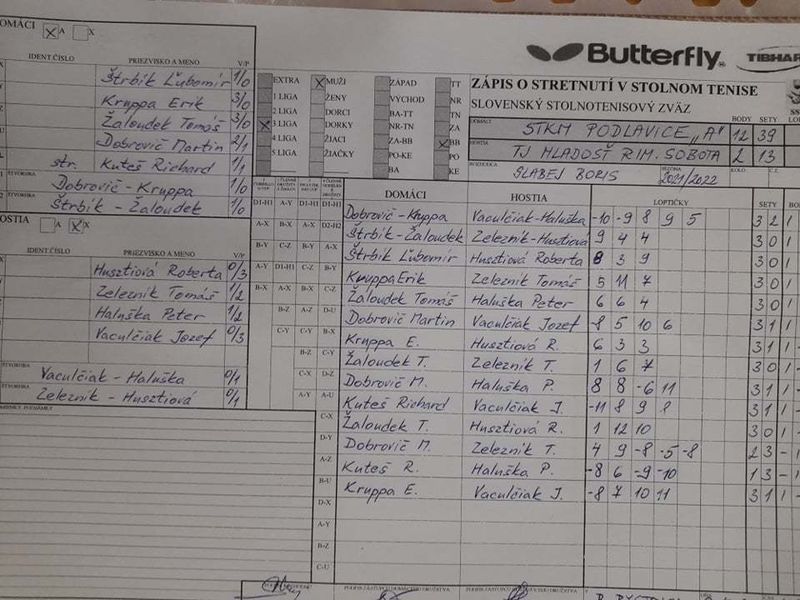 DOMÁCI A X
IDENT.ČÍSLO PRIEZVISKO A MENO V/P
Štrbík Ľubomír 1/0
Kruppa Erik 3/0
Žaloudek Tomáš 3/0
Dobrovič Martin 2/1
str. Kuteš Richard 1/1
ŠTVORHRA
Dobrovič - Kruppa 1/0
Štrbík - Žaloudek 1/0
HOSTIA A X
IDENT.ČÍSLO PRIEZVISKO A MENO V/P
Husztiová Roberta 0/3
Zelezník Tomáš 1/2
Haluška Peter 1/2
Vaculčiak Jozef 0/3
ŠTVORHRA
Vaculčiak - Haluška 0/1
Zelezník - Husztiová 0/1
Butterfly TIBHAR
EXTRA MUŽI ZÁPAD TT
1 LIGA ŽENY VÝCHOD NR
2 LIGA DORCI BA-TT TN
3 LIGA DORKY NR-TN ZA
4 LIGA ŽIACI ZA-BB BB
5 LIGA ŽIAČKY PO-KE PO
BA KE
ZÁPIS O STRETNUTÍ V STOLNOM TENISE
SLOVENSKÝ STOLNOTENISOVÝ ZVÄZ
DOMÁCI BODY SETY
STKM PODLAVICE "A" 12 39
HOSTIA
TJ MLADOSŤ RIM. SOBOTA 2 13
ROZHODCA SEZÓNA KOLO
SLABEJ BORIS 2021/2022
DOMÁCI HOSTIA LOPTIČKY SETY
Dobrovič - Kruppa Vaculčiak - Haluška -10 -9 8 9 5 3 2 1
Štrbík - Žaloudek Zelezník - Husztiová 9 4 4 3 0 1
Štrbík Ľubomír Husztiová Roberta 8 3 9 3 0 1
Kruppa Erik Zelezník Tomáš 5 11 7 3 0 1
Žaloudek Tomáš Haluška Peter 6 6 4 3 0 1
Dobrovič Martin Vaculčiak Jozef -8 5 10 6 3 1 1
Kruppa E. Husztiová R. 6 3 3 3 1
Žaloudek T. Zelezník T. 1 6 7 3 0 1
Dobrovič M. Haluška P. 8 8 -6 11 3 1 1
Kuteš Richard Vaculčiak J. -11 8 9 8 3 1 1
Žaloudek T. Husztiová R. 1 12 10 3 0 1
Dobrovič M. Zelezník T. 4 9 -8 -5 -8 2 3 -
Kuteš R. Haluška P. -8 6 -9 -10 1 3 -
Kruppa E. Vaculčiak J. -8 7 10 11 3 1 1